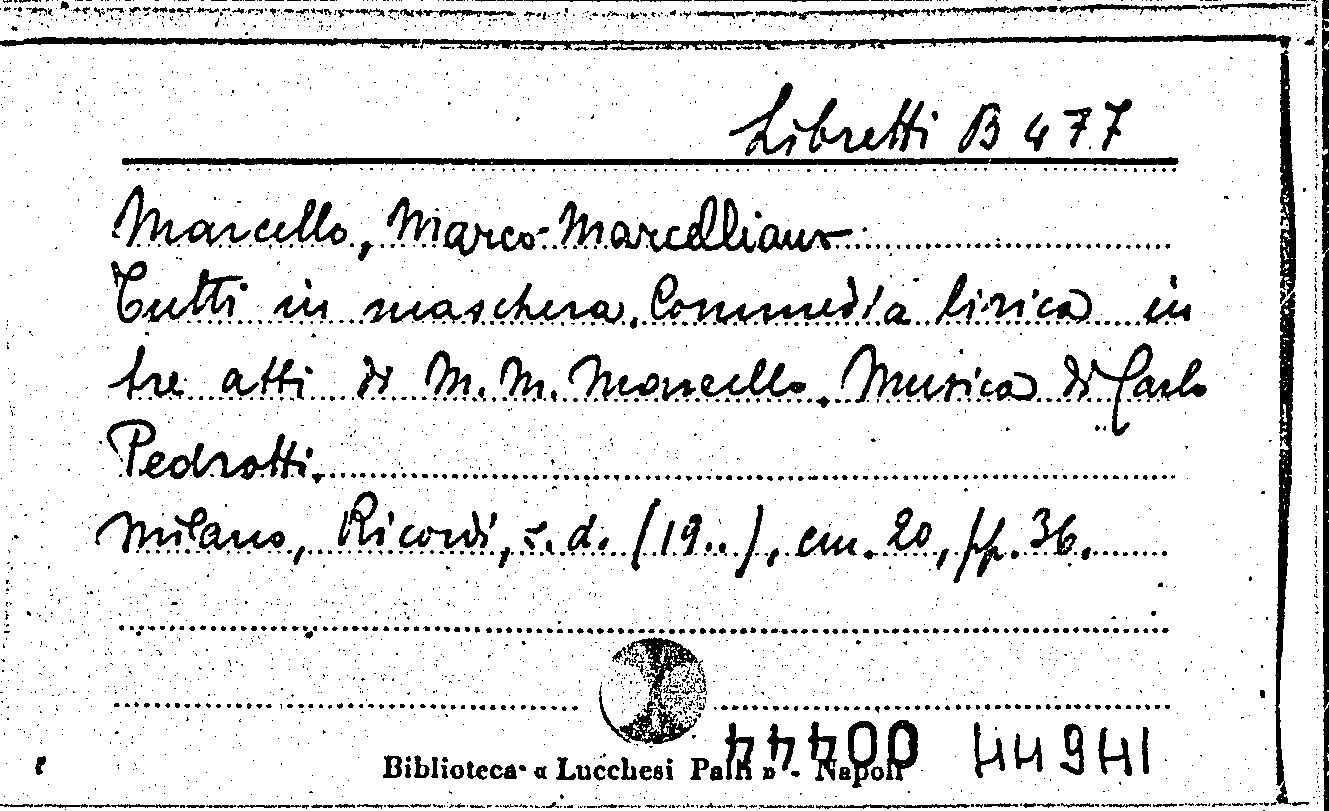 Libretti B 477
Marcello, Marco-Marcelliano
Tutti in maschera. Commedia lirica in
tre atti di M. M. Marcello. Musica di Carlo
Pedrotti.
Milano, Ricordi, s. d. (19..), cm. 20, pp. 36.
44400 44941
Biblioteca « Lucchesi Palli » - Napoli